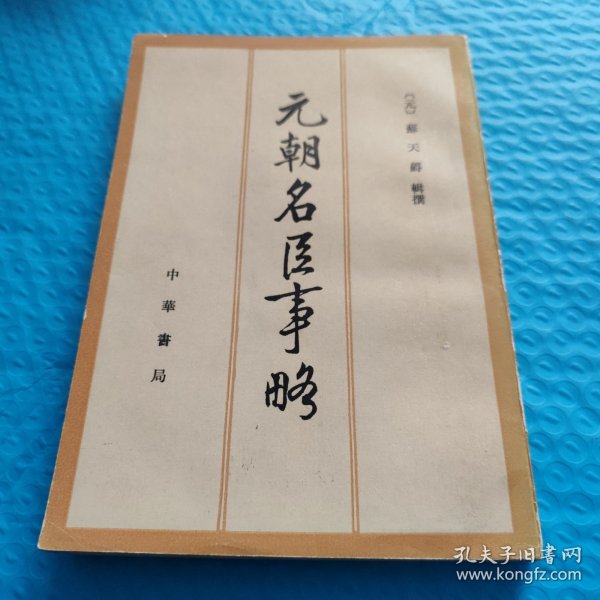 〔元〕蘇天爵 輯撰
元朝名臣事略
中華書局
孔夫子旧书网
www.kongfz.com